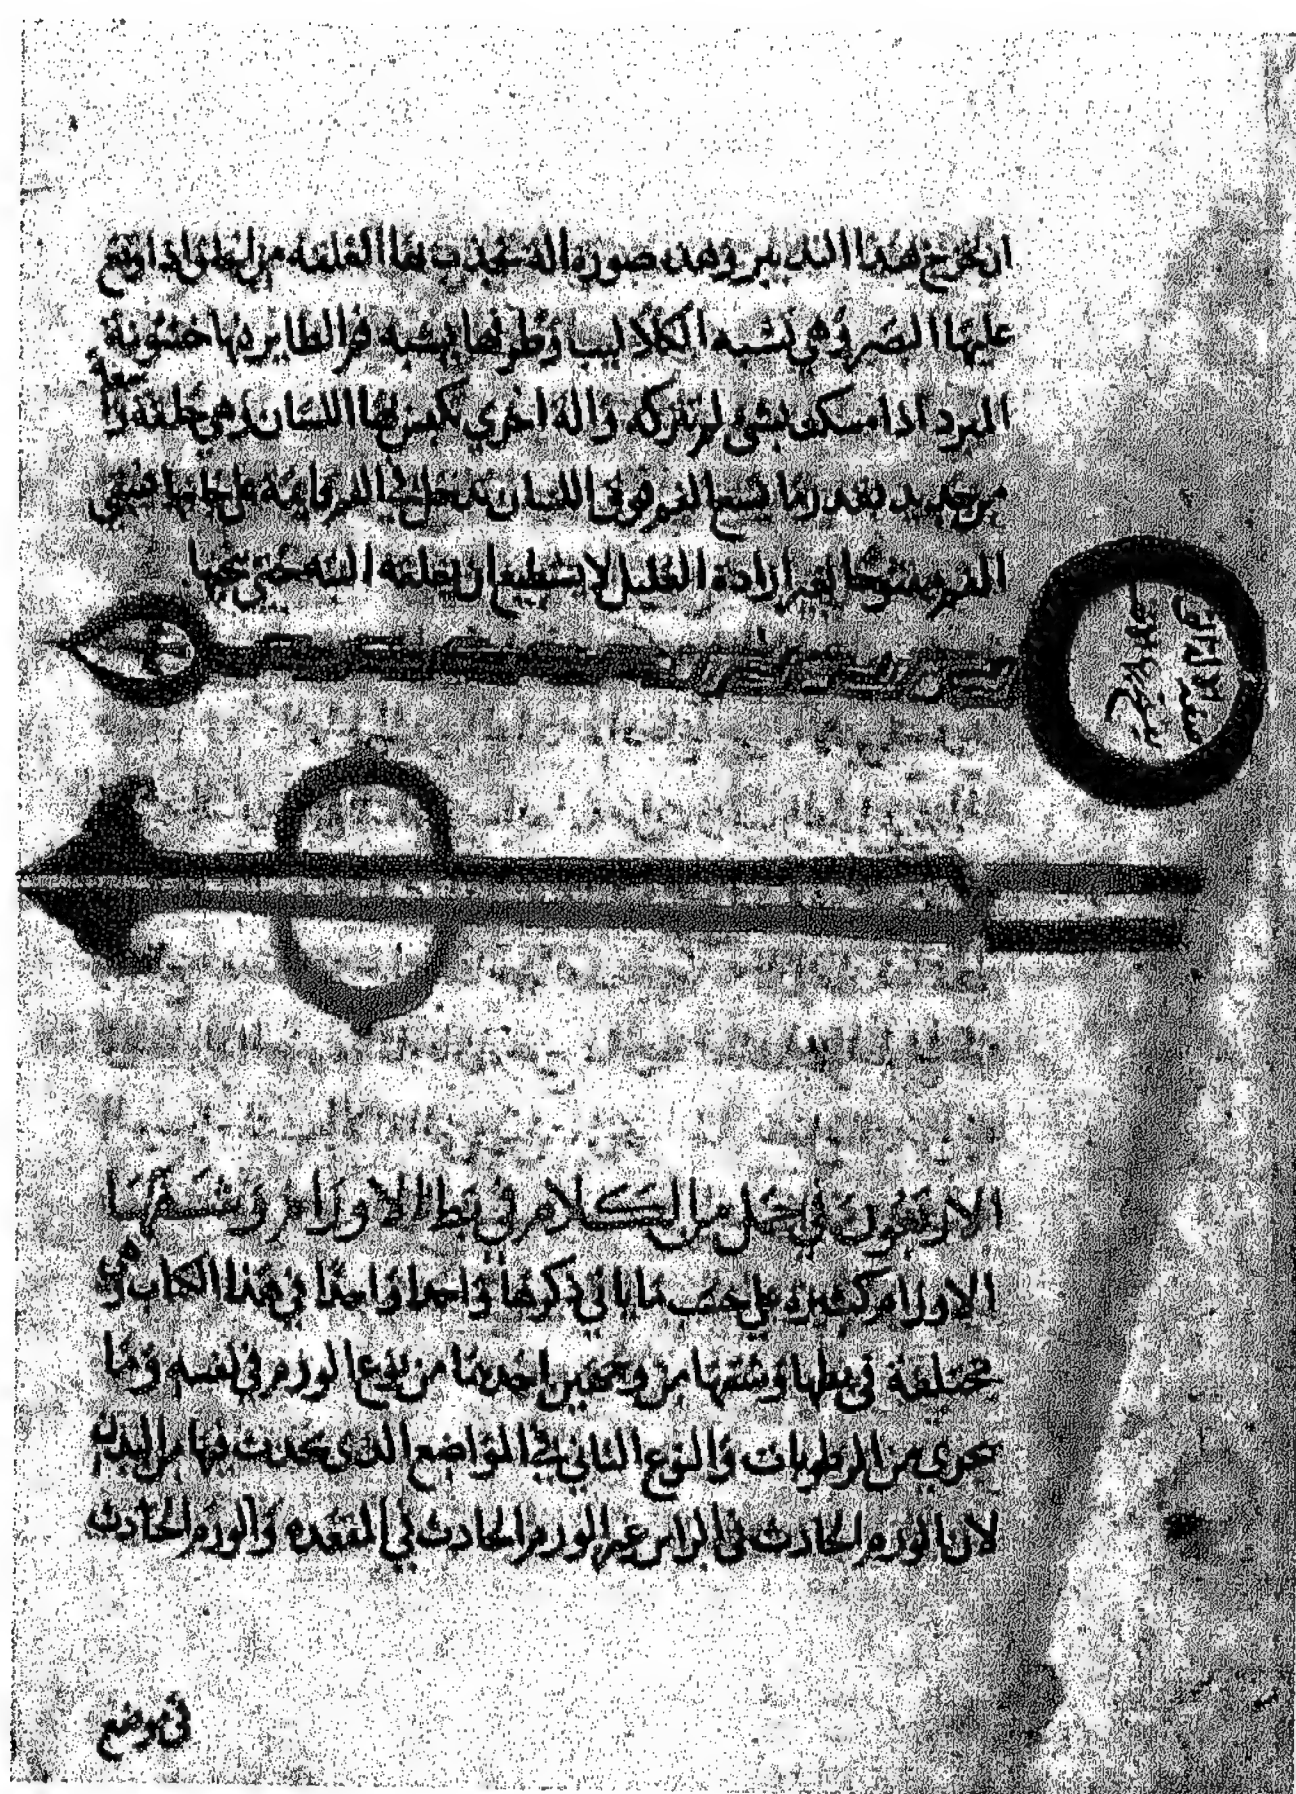 ان تخرج هذا التدبير وهذه صورة الة تجذب بها العلقة من الحلق اذا وقع
عليها البصر وهي تشبه الكلاليب وطرفها يشبه فم الطاير فيها خشونة
المبرد اذا مسكت بشي لم تتركه والة اخري يكبس بها اللسان وهي حلقة
من حديد بقدر ما يسع الفم فوق اللسان تدخل في الفم قايمة علي جانبها فيبقي
الفم مفتوحا بغير ارادة العليل لا يستطيع ان يغلقه البته حتي تخرجها
الاربعون في جمل من الكلام في بط الاورام وشقها
الاورام كثيرة علي حسب ما ياتي ذكرها واحدا واحدا في هذا الكتاب وهي
مختلفة في بطها وشقها من وجهين احدهما من نوع الورم في نفسه وما
يحوي من الرطوبات والنوع الثاني في المواضع الذي يحدث فيها من البدن
لان الورم الحادث في الراس غير الورم الحادث في المقعده والورم الحادث
في موضع